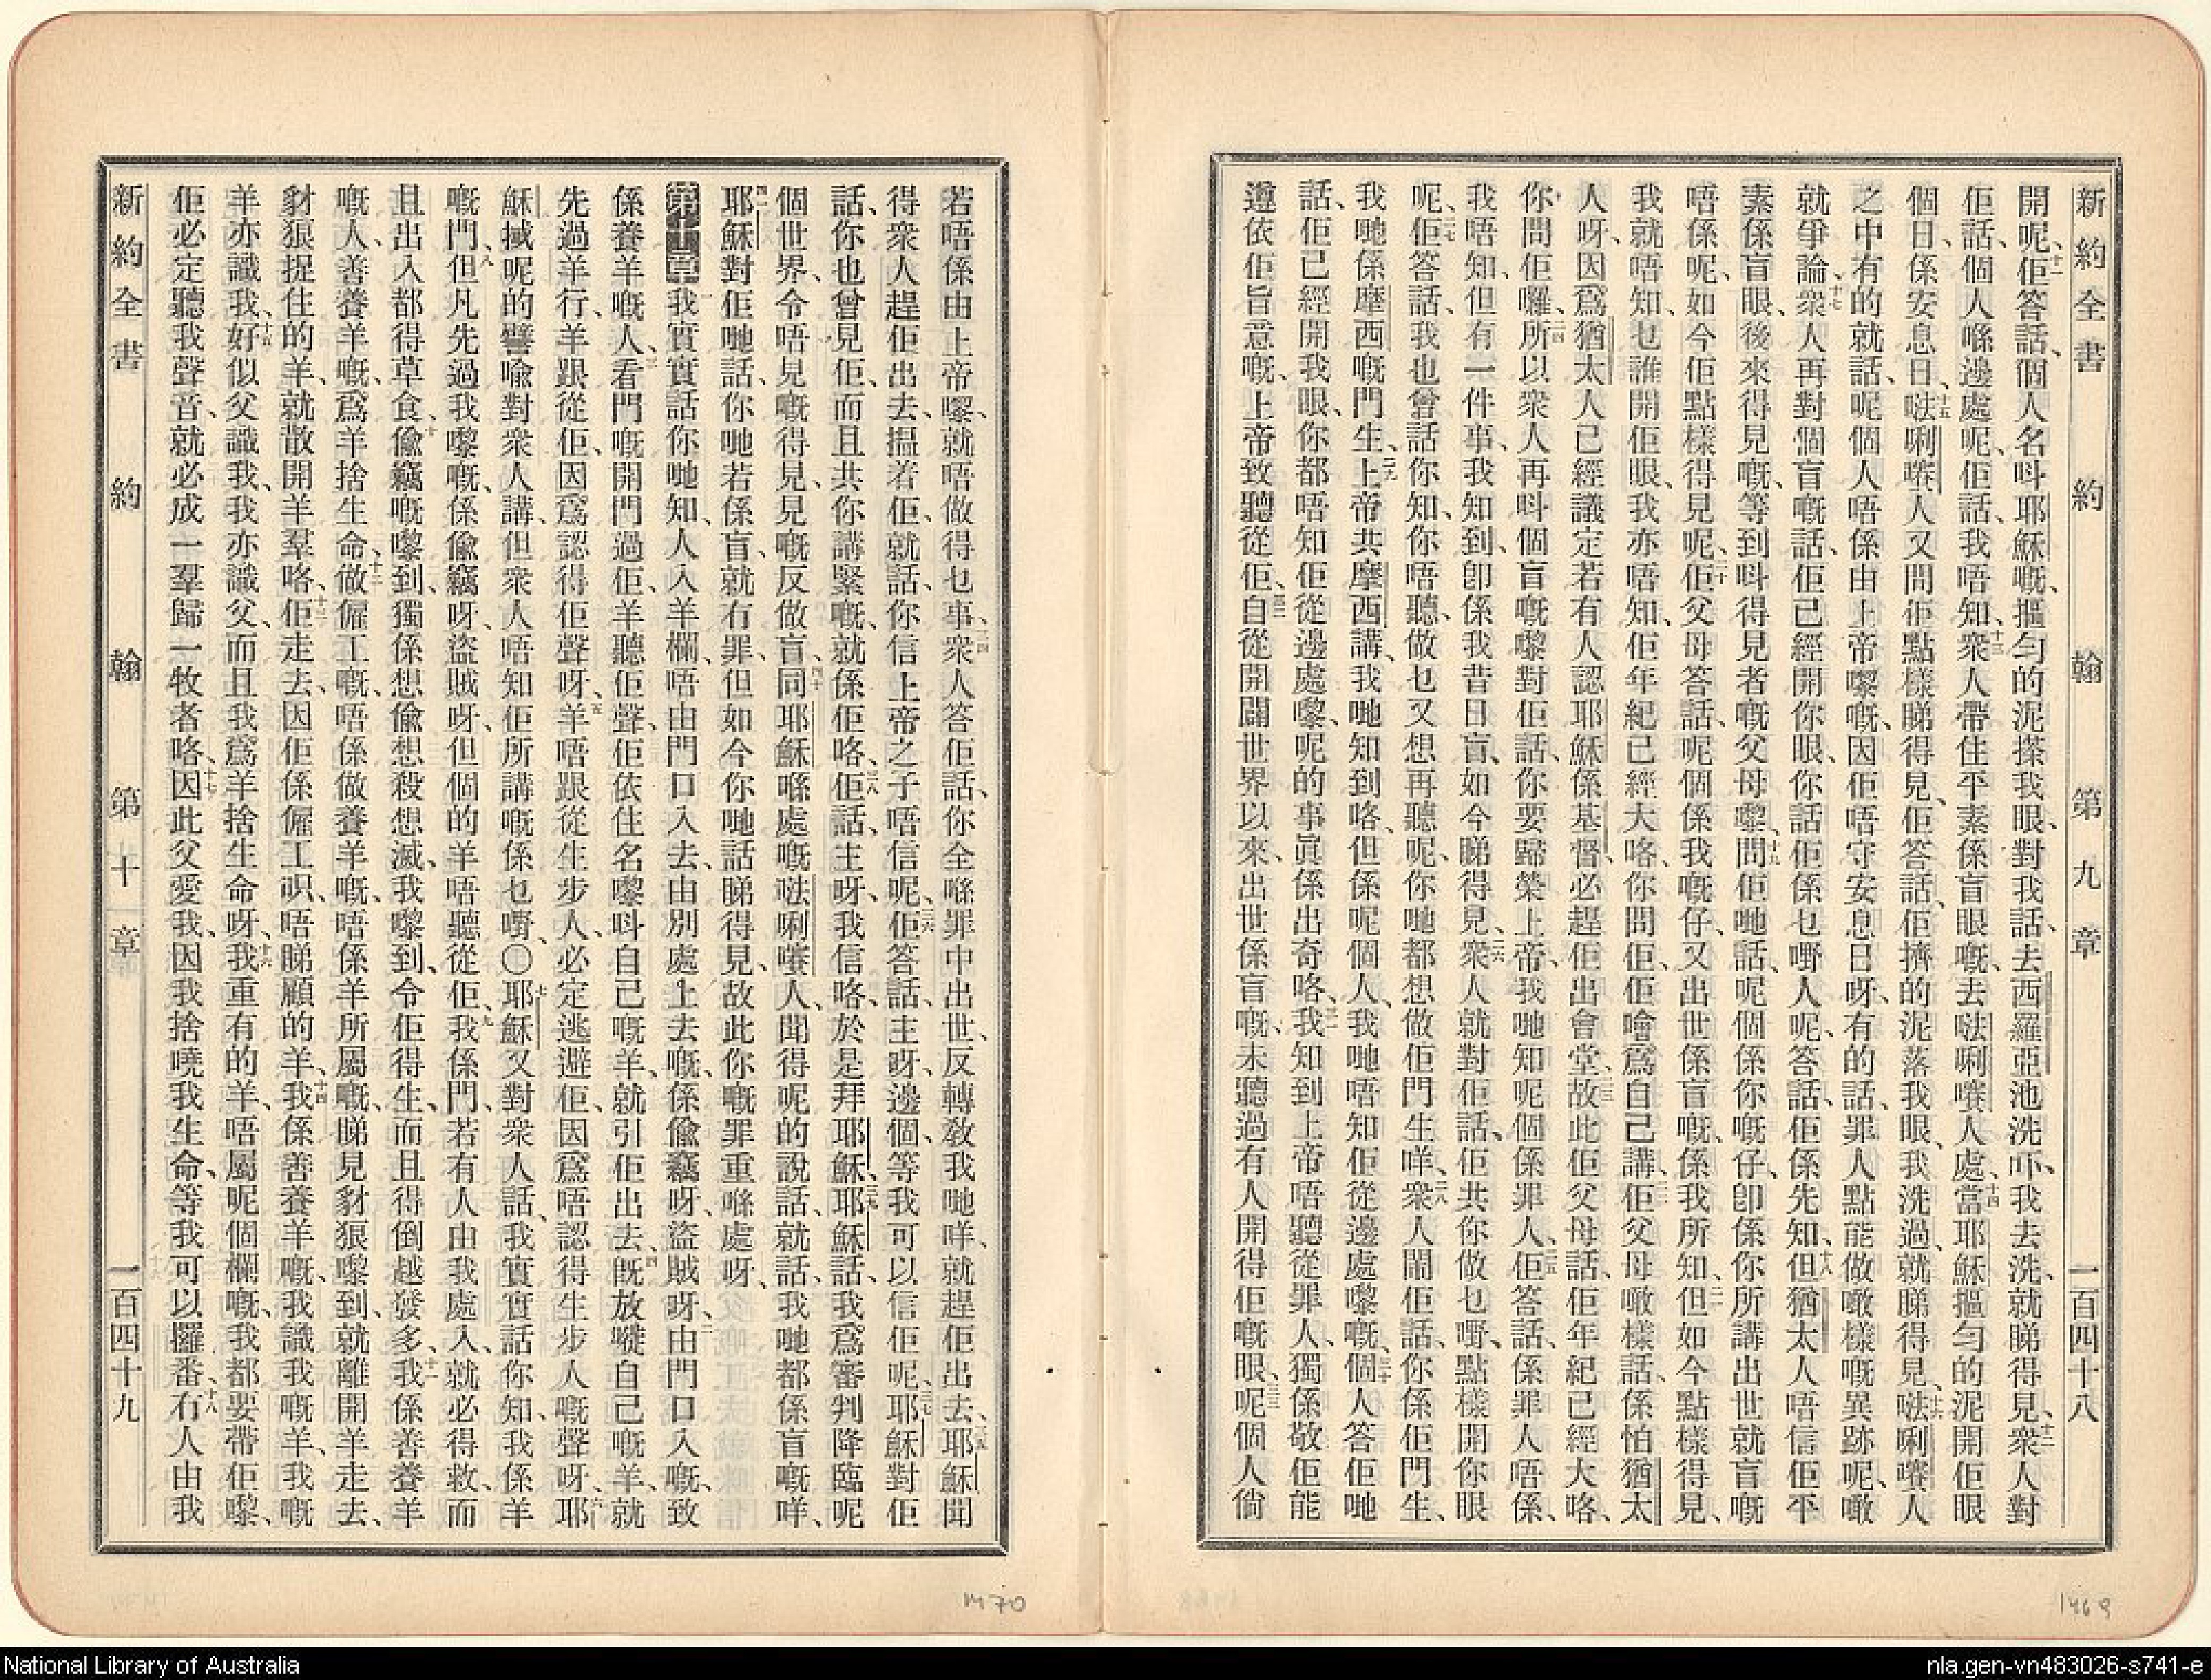 新約全書 約翰 第九章 一百四十八
開呢、十一佢答話、個人名呌耶穌嘅、搵勻的泥搽我眼、對我話、去西羅亞池洗吓、我去洗、就睇得見、十二衆人對
佢話、個人喺邊處呢、佢話、我唔知、十三衆人帶住平素係盲眼嘅、去𠵽唎嚌人處、十四當耶穌摳勻的泥開佢眼
個日、係安息日、十五人又問佢點樣睇得見、佢答話、佢擠的泥落我眼、我洗過、就睇得見、十六人
之中有的就話、呢個人唔係由上帝嚟嘅、因佢唔守安息日呀、有的話、罪人點能做噉樣嘅異跡呢、噉
就爭論、十七衆人再對個盲嘅話、佢已經開你眼、你話佢係乜嘢人呢、答話、佢係先知、十八但猶太人唔信佢平
素係盲眼、後來得見嘅、等到呌得見者嘅父母嚟、十九問佢哋話、呢個係你嘅仔、卽係你所講出世就盲嘅
唔係呢、如今佢點樣得見呢、二十佢父母答話、呢個係我嘅仔、又出世係盲嘅、係我所知、二一但如今點樣得見、
我就唔知、乜誰開佢眼、我亦唔知、佢年紀已經大咯、你問佢、佢噲爲自己講、二二佢父母噉樣話、係怕猶太
人呀、因爲猶太人已經議定、若有人認耶穌係基督、必趕佢出會堂、二三故此佢父母話、佢年紀已經大咯、
你問佢囉、二四所以衆人再呌個盲嘅嚟對佢話、你要歸榮上帝、我哋知呢個係罪人、二五佢答話、係罪人唔係、
我唔知、但有一件事、我知到、卽係我昔日盲、如今睇得見、二六衆人就對佢話、佢共你做乜嘢、點樣開你眼
呢、二七佢答話、我也曾話你知、你唔聽、做乜又想再聽呢、你哋都想做佢門生咩、二八衆人鬧佢話、你係佢門生、
我哋係摩西嘅門生、二九上帝共摩西講、我哋知到咯、但係呢個人、我哋唔知佢從邊處嚟嘅、三十個人答佢哋
話、佢已經開我眼、你都唔知佢從邊處嚟、呢的事眞係出奇咯、三一我知到上帝唔聽從罪人、獨係敬佢能
遵依佢旨意嘅、上帝致聽從佢、三二自從開闢世界以來、出世係盲嘅、未聽過有人開得佢嘅眼、三三呢個人倘
若唔係由上帝嚟、就唔做得乜事、三四衆人答佢話、你全喺罪中出世、反轉敎我哋咩、就趕佢出去、三五耶穌聞
得衆人趕佢出去、搵着佢、就話、你信上帝之子唔信呢、三六佢答話、主呀、邊個、等我可以信佢呢、三七耶穌對佢
話、你也曾見佢、而且共你講緊嘅、就係佢咯、三八佢話、主呀、我信咯、於是拜耶穌、三九耶穌話、我爲審判降臨呢
個世界、令唔見嘅得見、見嘅反做盲、四十同耶穌喺處嘅人、聞得呢的說話、就話、我哋都係盲嘅咩、
四一耶穌對佢哋話、你哋若係盲、就有罪、但如今你哋話睇得見、故此你嘅罪重喺處呀、
第十章 一我實實話你哋知、人入羊欄、唔由門口入去、由別處上去嘅、係偸竊呀、盜賊呀、二由門口入嘅、致
係養羊嘅人、三看門嘅開門過佢、羊聽佢聲、佢依住名嚟呌自己嘅羊、就引佢出去、四旣放嗮自己嘅羊、就
先過羊行、羊跟從佢、因爲認得佢聲呀、五羊唔跟從生步人、必定逃避佢、因爲唔認得生步人嘅聲呀、六耶
穌搣呢的譬喩對衆人講、但衆人唔知佢所講嘅係乜嘢、〇七耶穌又對衆人話、我實實話你知、我係羊
嘅門、八但凡先過我嚟嘅、係偸竊呀、盜賊呀、但個的羊唔聽從佢、九我係門、若有人由我處入、就必得救、而
且出入都得草食、十偸竊嘅嚟到、獨係想偸想殺想滅、我嚟到、令佢得生、而且得倒越發多、十一我係善養羊
嘅人、善養羊嘅、爲羊捨生命、十二做僱工嘅、唔係做養羊嘅、唔係羊所屬嘅、睇見豺狼嚟到、就離開羊走去、
豺狼捉住的羊、就散開羊羣咯、十三佢走去、因佢係僱工、唔睇顧的羊、十四我係善養羊嘅、我識我嘅羊、我嘅
羊亦識我、十五好似父識我、我亦識父、而且我爲羊捨生命呀、十六我重有的羊、唔屬呢個欄嘅、我都要帶佢嚟、
佢必定聽我聲音、就必成一羣、歸一牧者咯、十七因此父愛我、因我捨嘵我生命、等我可以攞番、十八冇人由我
新約全書 約翰 第十章 一百四十九
1469
1470
National Library of Australia
nla.gen-vn483026-s741-e